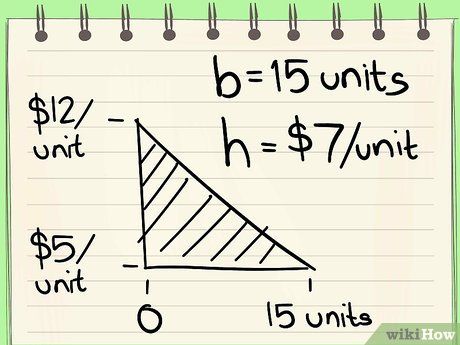 b=15 units
$12/
unit
h = $7/unit
$5/
unit
0
15 units
wikiHow